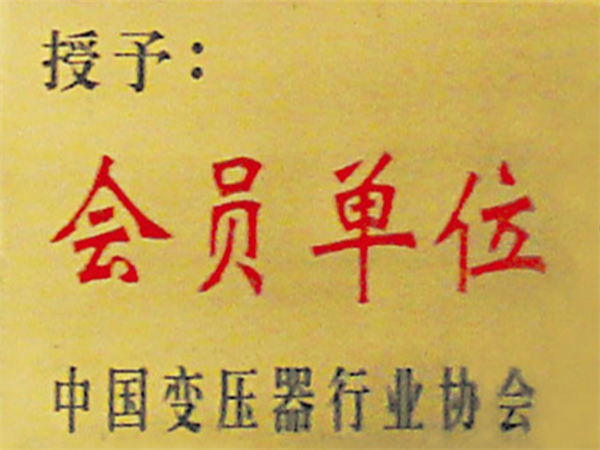 授予：
会员单位
中国变压器行业协会